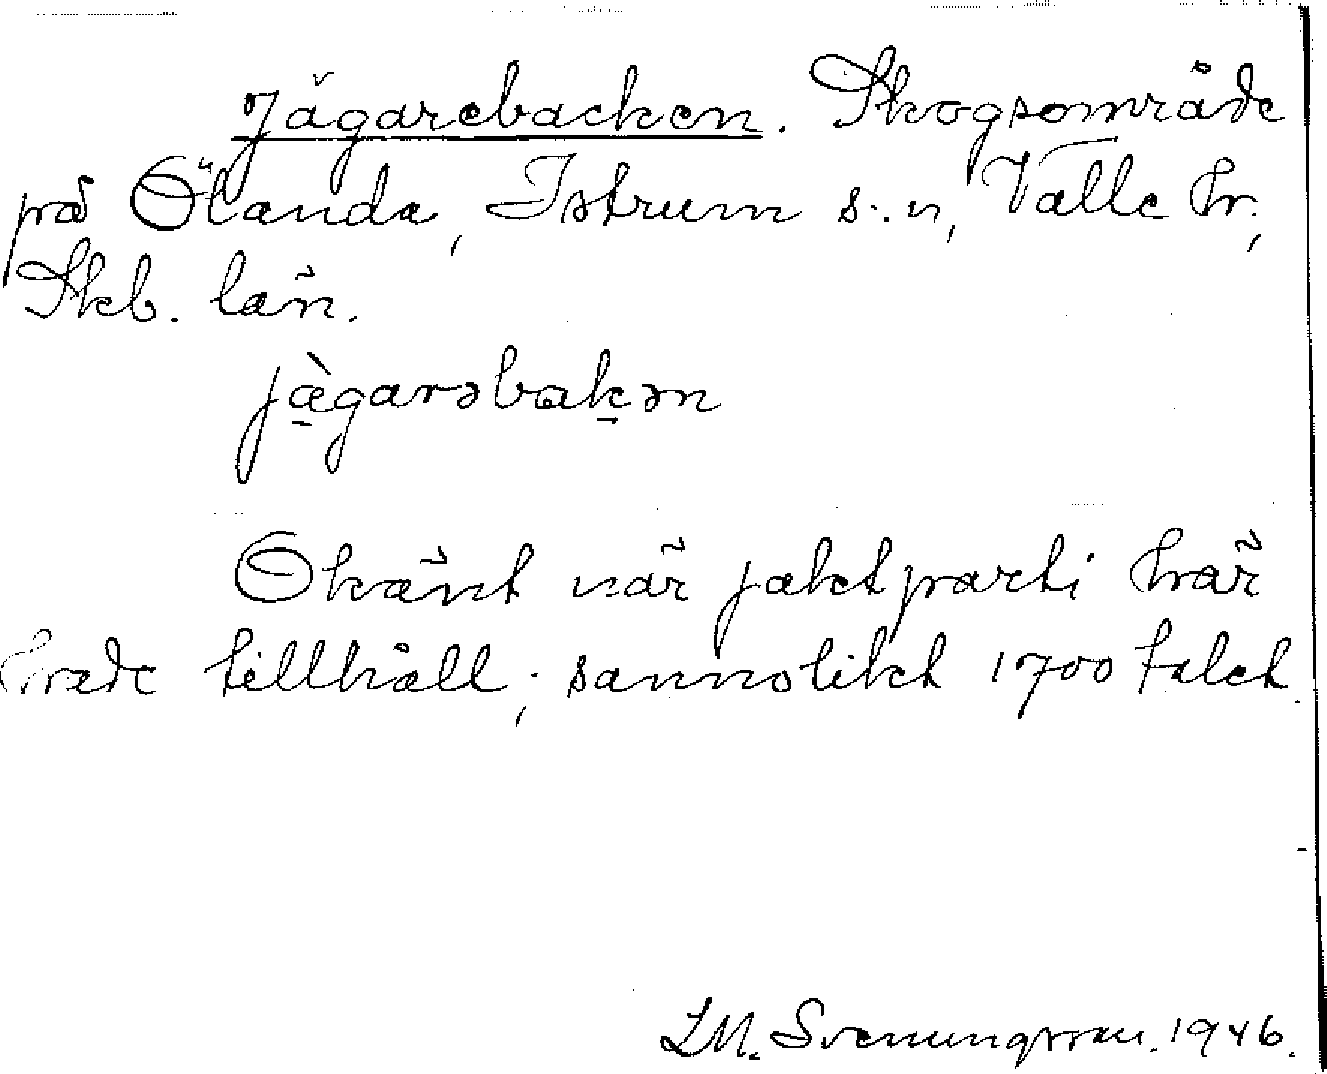 Jägarebacken. Skogsområde
på Ölanda, Istrum s:n, Valle hr,
Skb. län.
jàgarəbakən
Okänt när jaktparti här
hade tillhåll; sannolikt 1700 talet.
LM. Svenungsson. 1946.